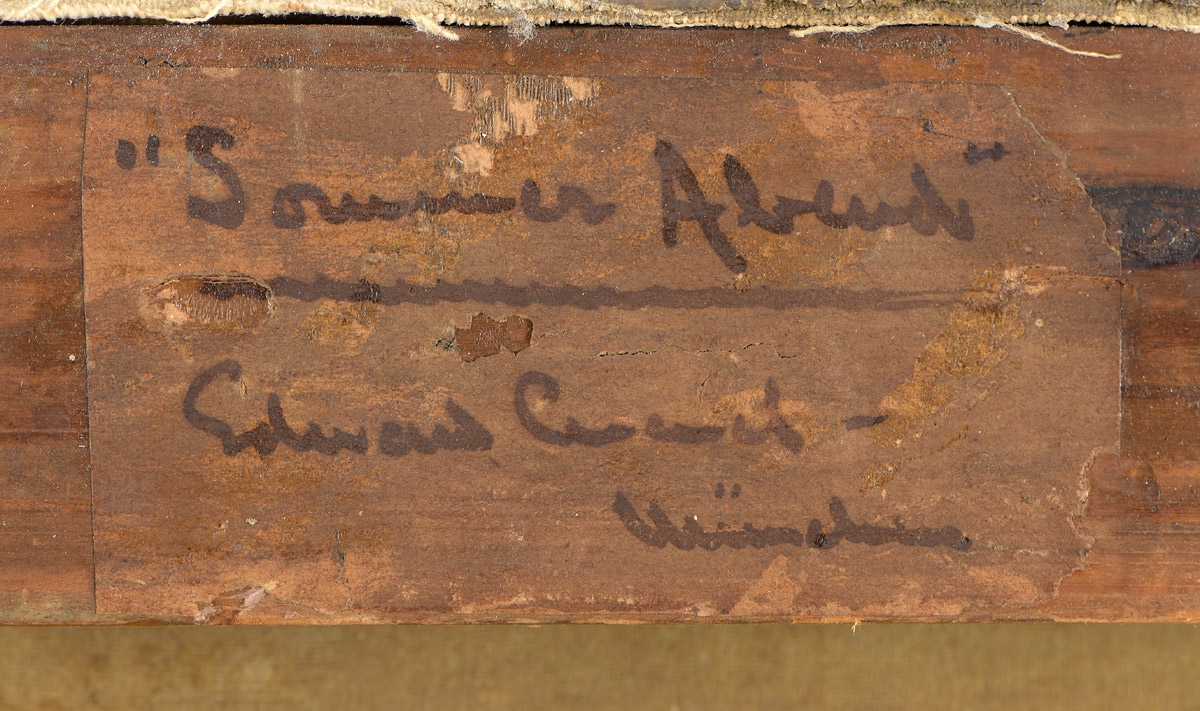 "Sommer Abend"
Edward Cucuel -
München